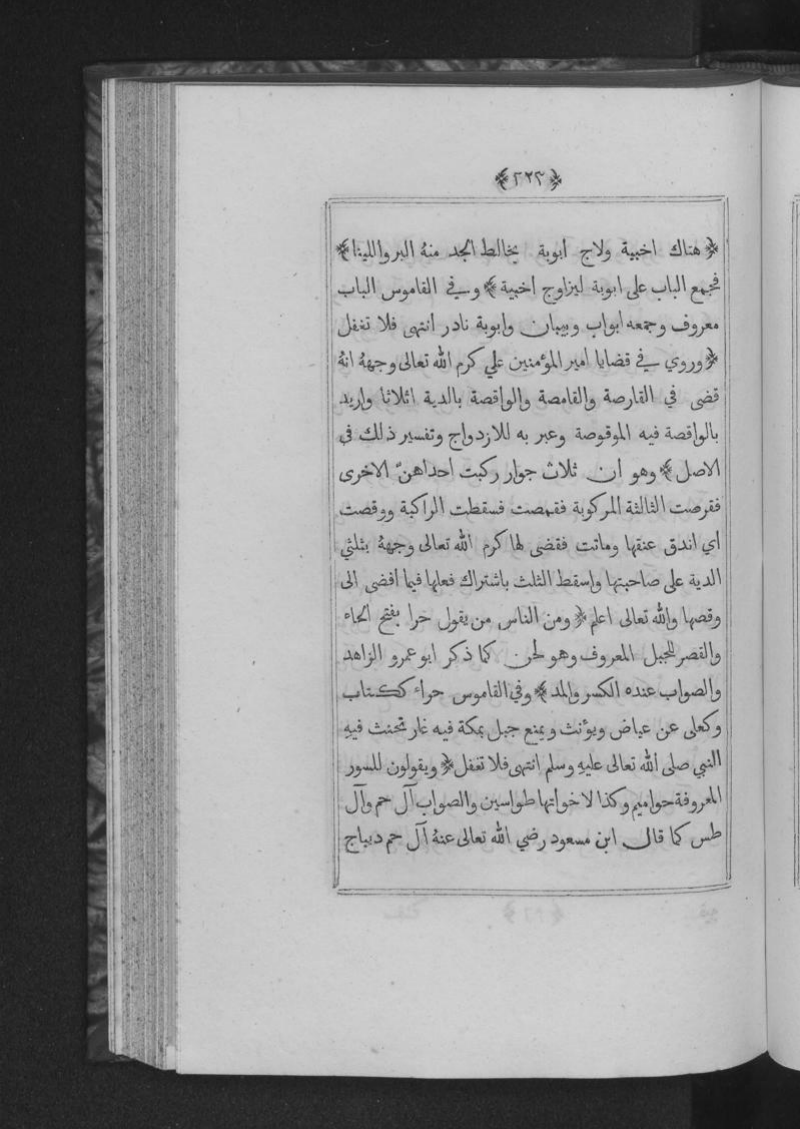 ﴿٢٢٢﴾
﴿ هتاك اخبية ولاج ابوبة يخالط الجد منهُ البر واللينا ﴾
فجمع الباب على ابوبة ليزاوج اخبية ﴾ وفي القاموس الباب
معروف وجمعه ابواب وبيبان وابوبة نادر انتهى فلا تغفل
﴿ وروي في قضايا امير المؤمنين علي كرم الله تعالى وجههُ انهُ
قضى في القارصة والقامصة والواقصة بالدية اثلاثا واريد
بالواقصة فيه الموقوصة وعبر به للازدواج وتفسير ذلك في
الاصل ﴾ وهو ان ثلاث جوار ركبت احداهنّ الاخرى
فقرصت الثالثة المركوبة فقمصت فسقطت الراكبة ووقصت
اي اندق عنقها وماتت فقضى لها كرم الله تعالى وجههُ بثلثي
الدية على صاحبتها واسقط الثلث باشتراك فعلها فيما افضى الى
وقصها والله تعالى اعلم ﴿ ومن الناس من يقول حرا بفتح الحاء
والقصر للجبل المعروف وهو لحن كما ذكر ابو عمرو الزاهد
والصواب عنده الكسر والمد ﴾ وفي القاموس حراء ككتاب
وكعلى عن عياض ويؤنث ويمنع جبل بمكة فيه غار تحنث فيهِ
النبي صلى الله تعالى عليهِ وسلم انتهى فلا تغفل ﴿ ويقولون للسور
المعروفة حواميم وكذا لاخواتها طواسين والصواب آل حم وآل
طس كما قال ابن مسعود رضي الله تعالى عنهُ آل حم ديباج